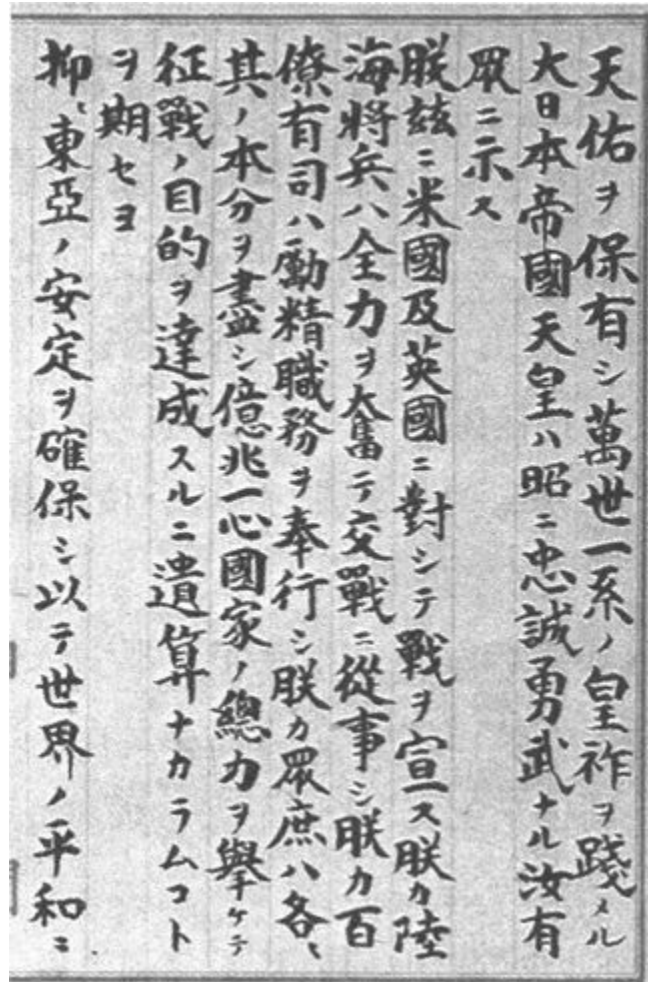 天佑ヲ保有シ萬世一系ノ皇祚ヲ踐メル
大日本帝國天皇ハ昭ニ忠誠勇武ナル汝有
眾ニ示ス
朕玆ニ米國及英國ニ對シテ戰ヲ宣ス朕カ陸
海將兵ハ全力ヲ奮テ交戰ニ從事シ朕カ百
僚有司ハ勵精職務ヲ奉行シ朕カ眾庶ハ各〻
其ノ本分ヲ盡シ億兆一心國家ノ總力ヲ擧ケテ
征戰ノ目的ヲ達成スルニ遺算ナカラムコト
ヲ期セヨ
抑〻東亞ノ安定ヲ確保シ以テ世界ノ平和ニ